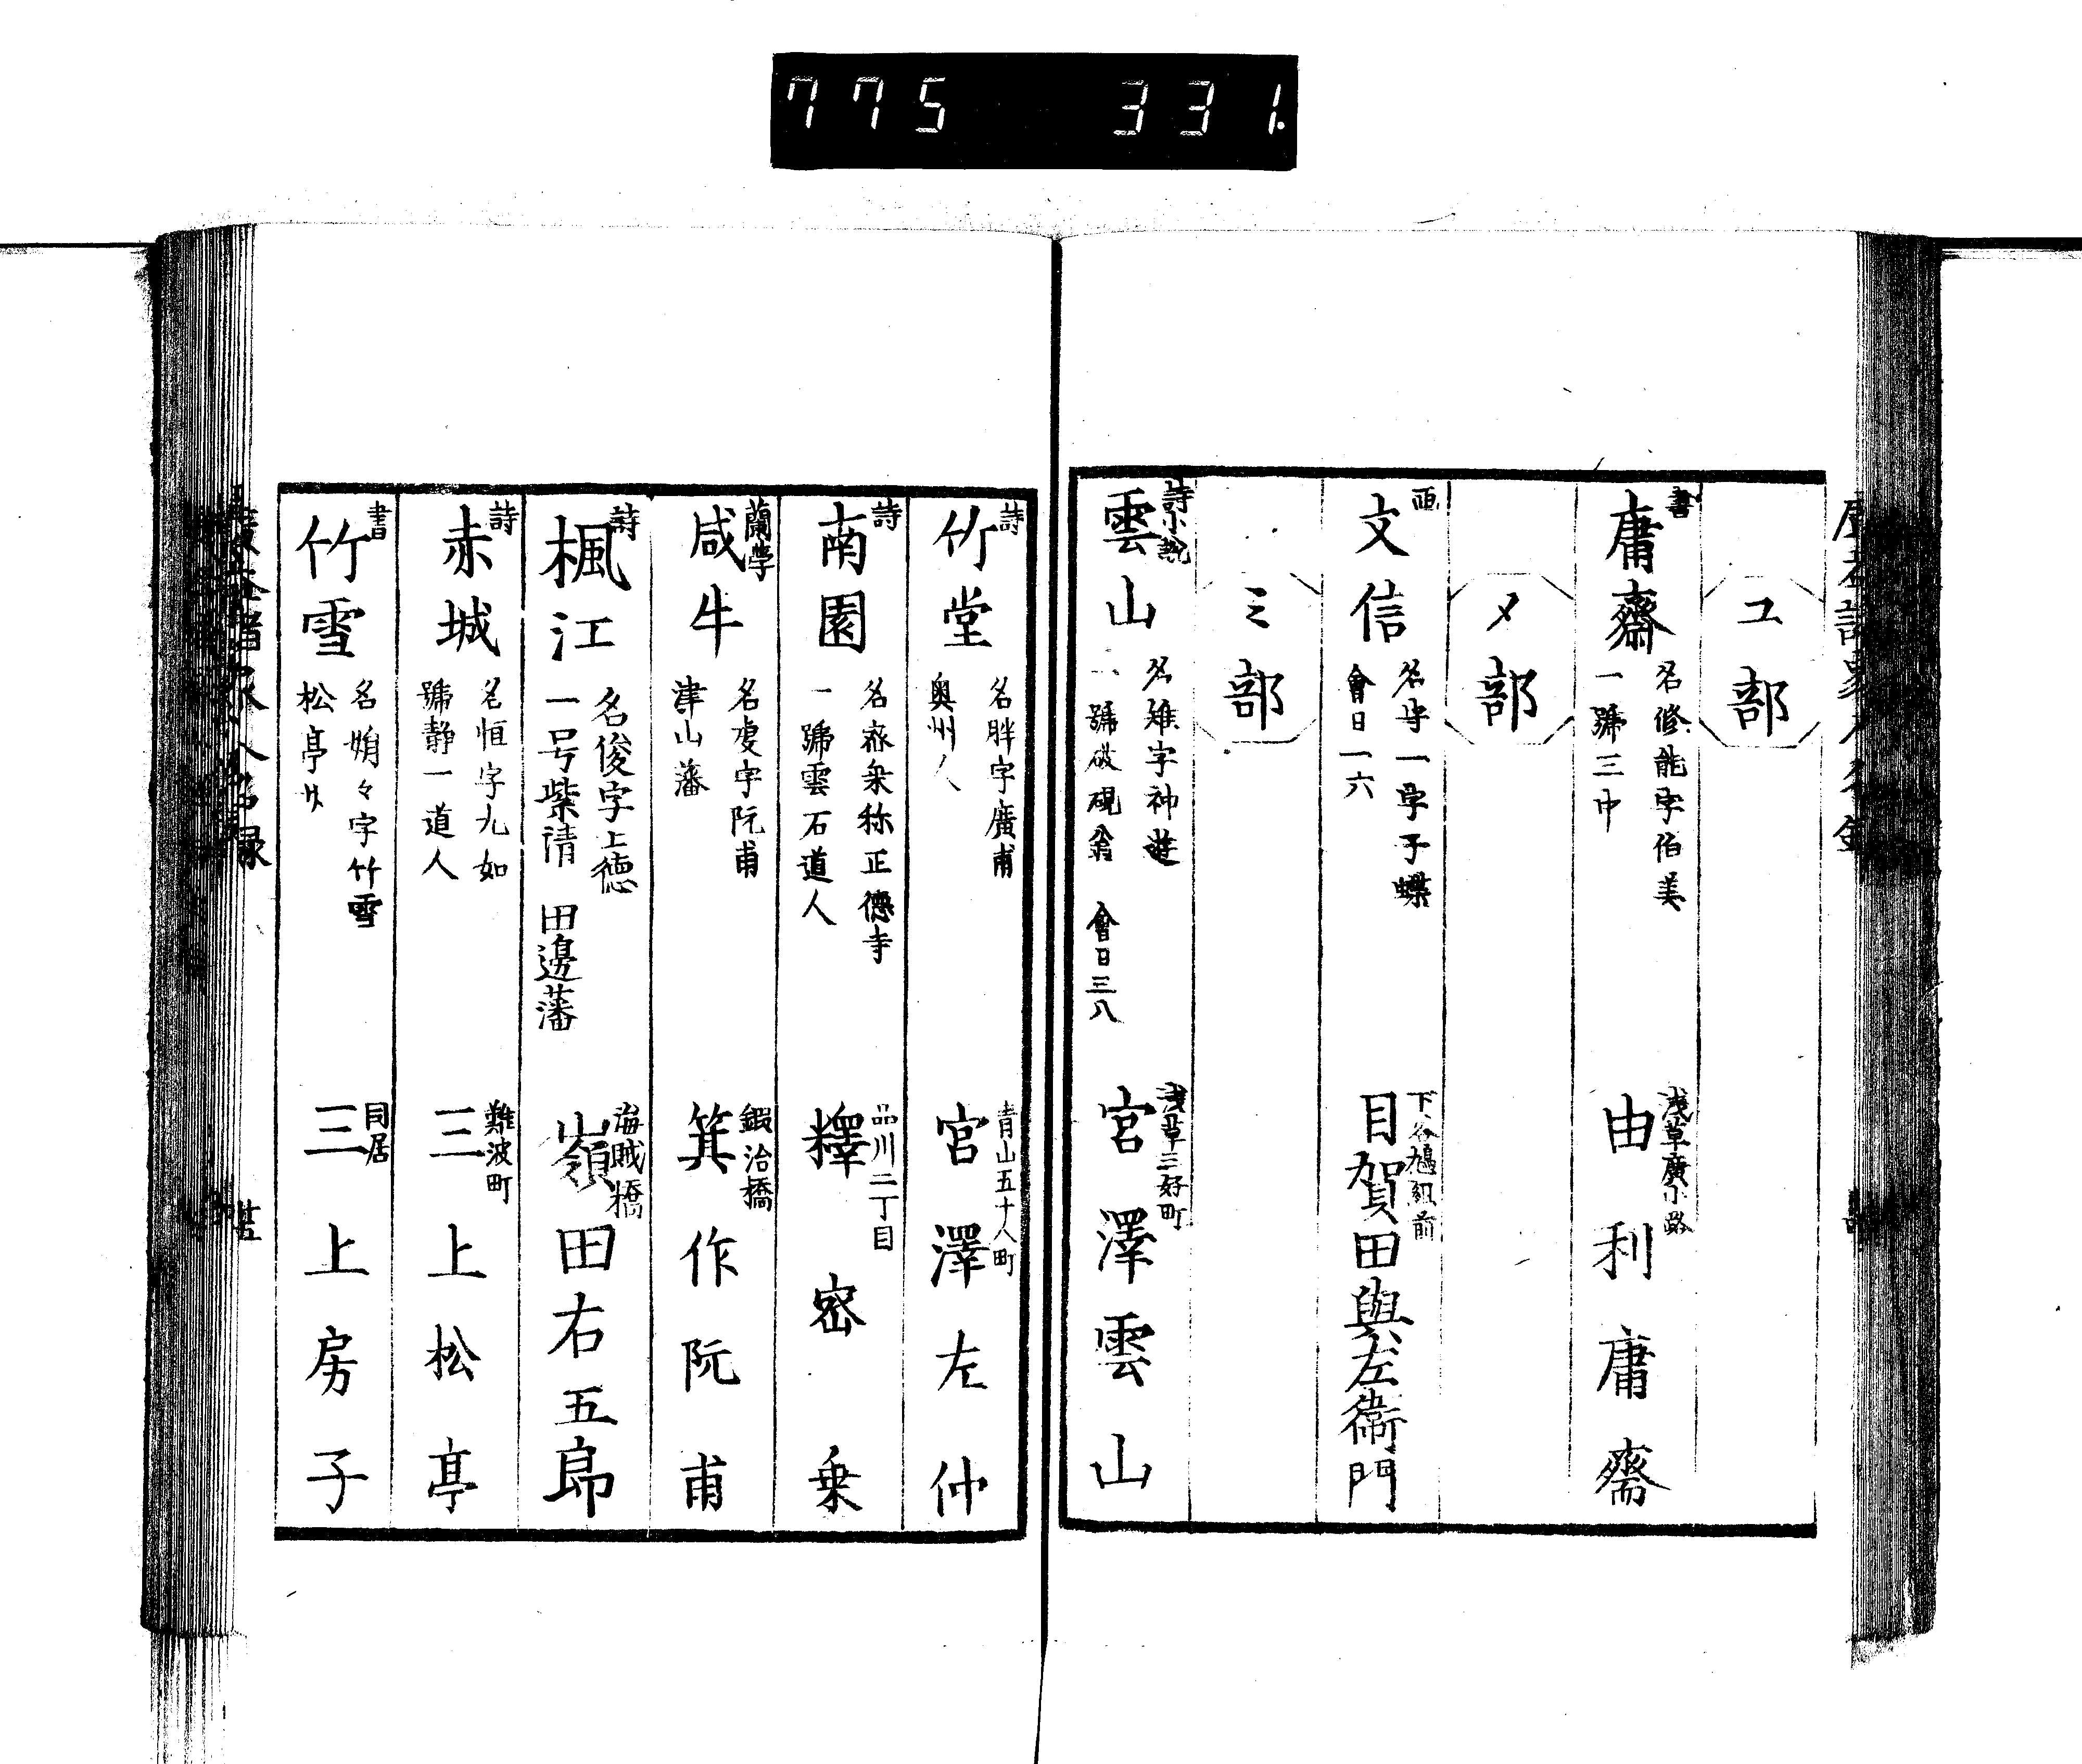 775 331.
ユ部
書
庸齋
名修能字伯美
一號三中
浅草廣小路
由利庸齋
メ部
画
文信
名守一字子蝶
會日一六
下谷鳩組前
目賀田與左衛門
ミ部
詩小説
雲山
名雉字神遊
一號破硯翁 會日三八
浅草三好町
宮澤雲山
詩
竹堂
名胖字廣甫
奥州人
青山五十人町
宮澤左仲
詩
南園
名密乗称正德寺
一號雲石道人
品川二丁目
釋密乗
蘭学
咸牛
名虔字阮甫
津山藩
鍜治橋
箕作阮甫
詩
楓江
名俊字士德
一号紫清 田邊藩
海賊橋
嶺田右五郎
詩
赤城
名恒字九如
號静一道人
難波町
三上松亭
書
竹雪
名娟々字竹雪
松亭女
同居
三上房子